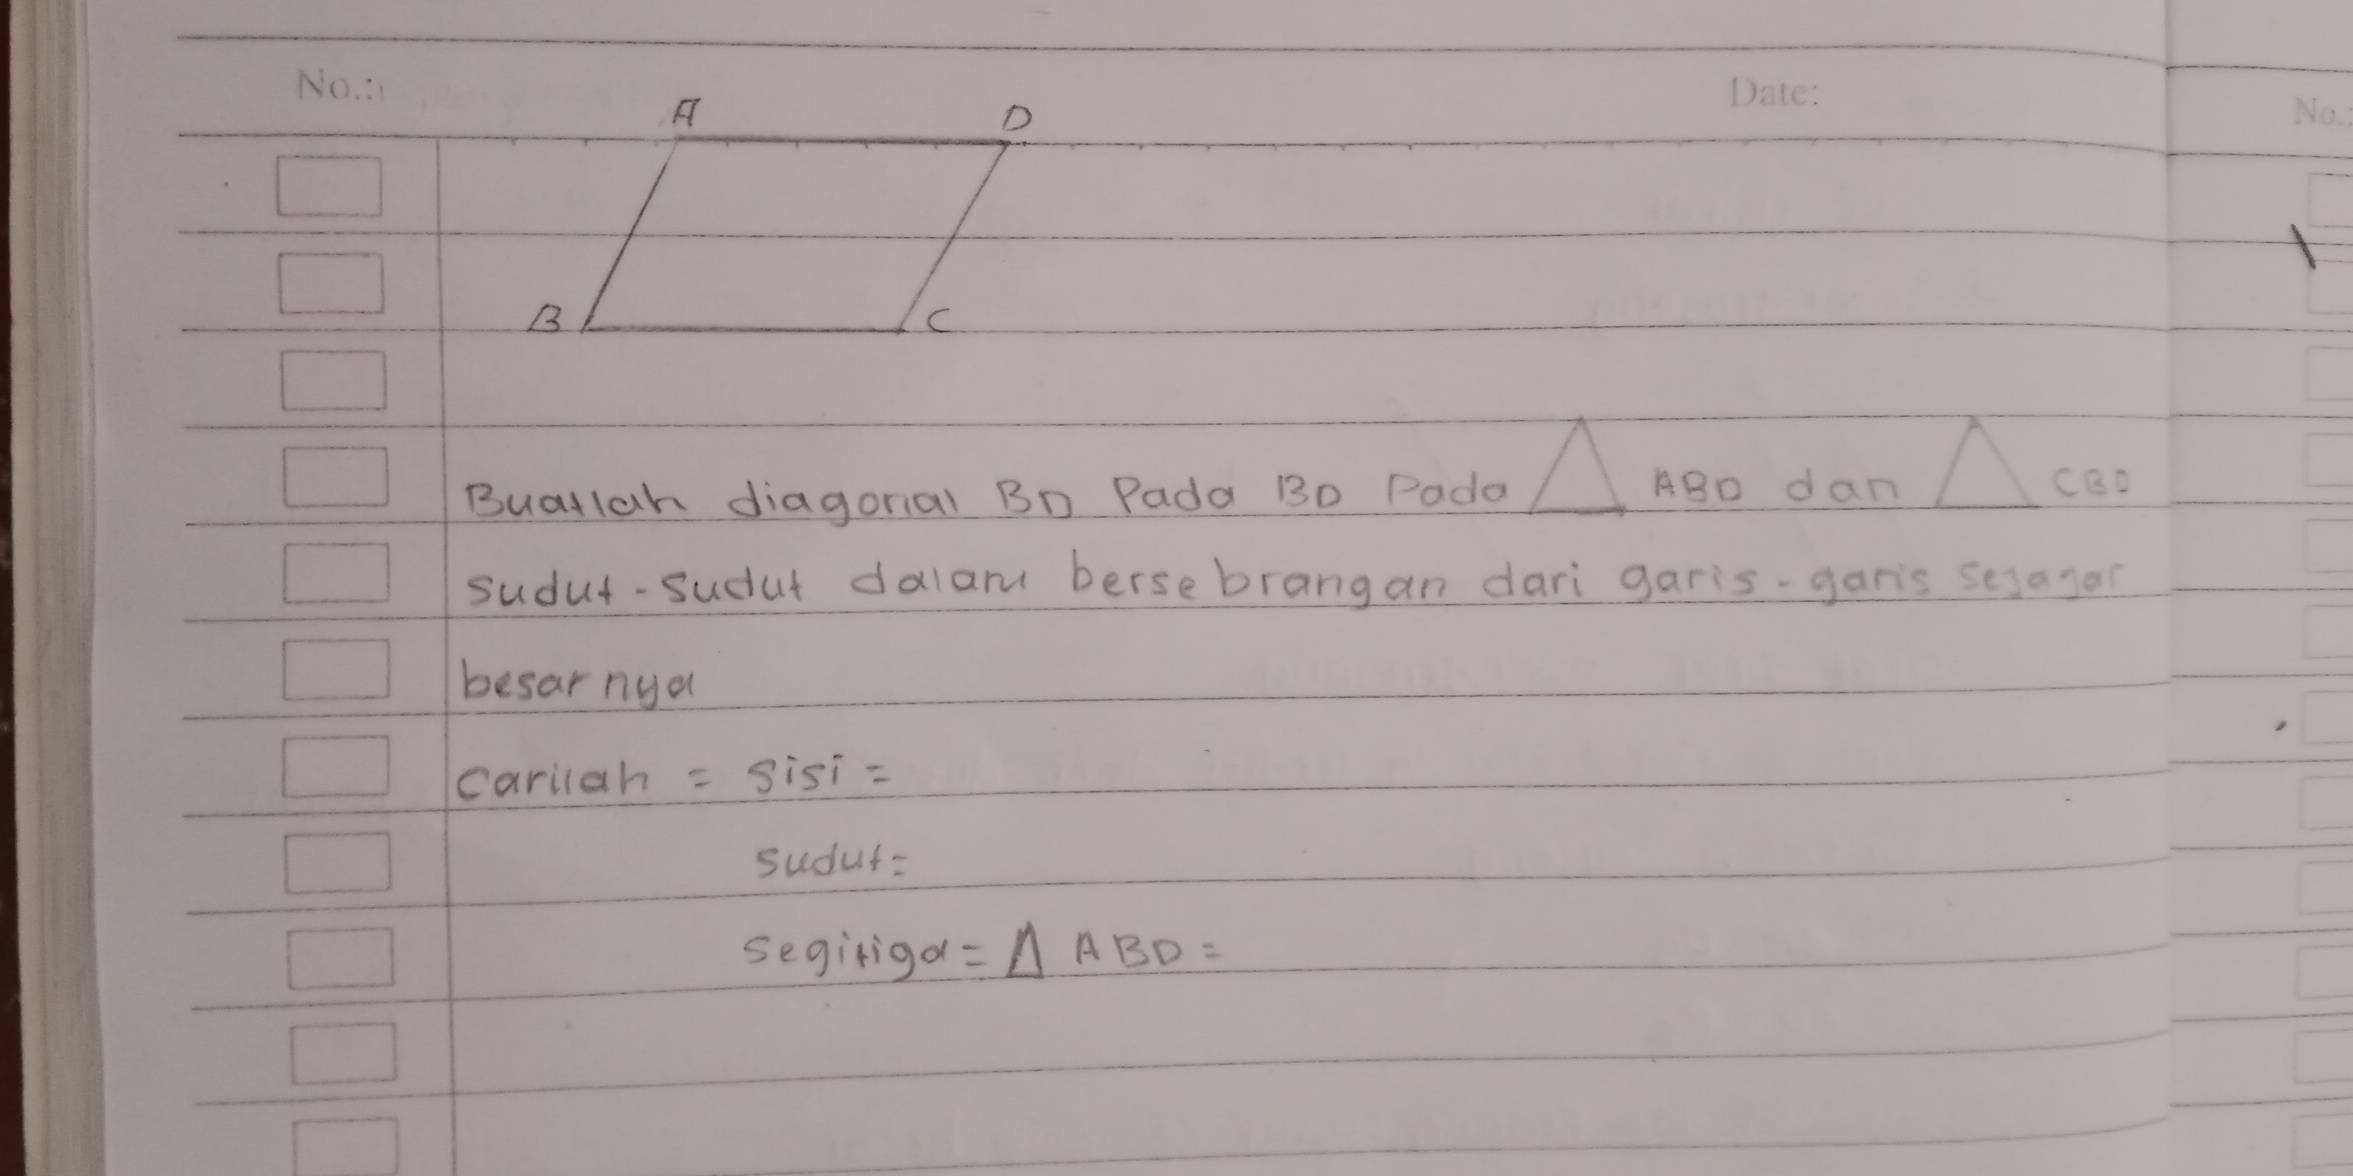 No.:
Date:
No.:
A D
B C
Buatlah diagonal BD Pada BD Pada △ ABD dan △ CBD
sudut-sudut dalam bersebrangan dari garis-garis sejajar
besarnya
carilah = sisi =
sudut=
segitiga = △ ABD =